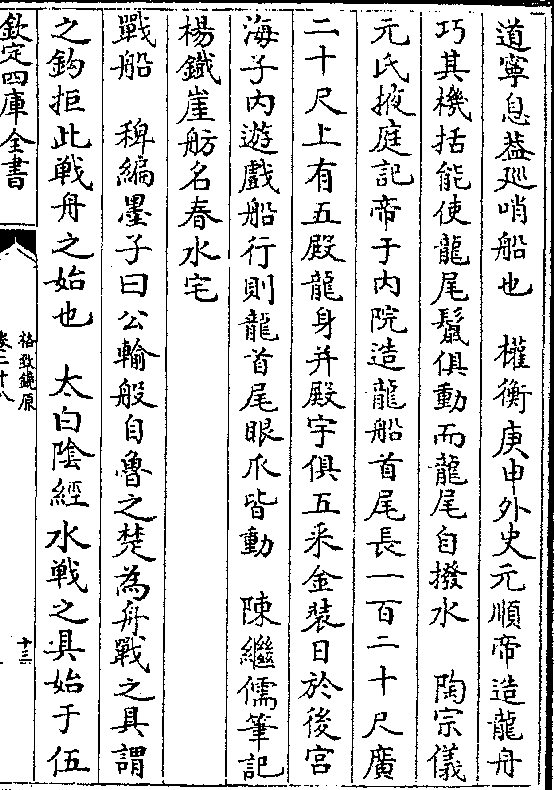 道寧息葢廵哨船也　權衡庚申外史元順帝造龍舟
巧其機括能使龍尾鬛俱動而龍尾自撥水　陶宗儀
元氏掖庭記帝于内院造龍船首尾長一百二十尺廣
二十尺上有五殿龍身并殿宇俱五采金裝日於後宫
海子内遊戲船行則龍首尾眼爪皆動　陳繼儒筆記
楊鐡崖舫名春水宅
戰船　稗編墨子曰公輸般自魯之楚為舟戰之具謂
之鈎拒此戰舟之始也　太白隂經水戰之具始于伍
欽定四庫全書
格致鏡原
卷二十八
十三